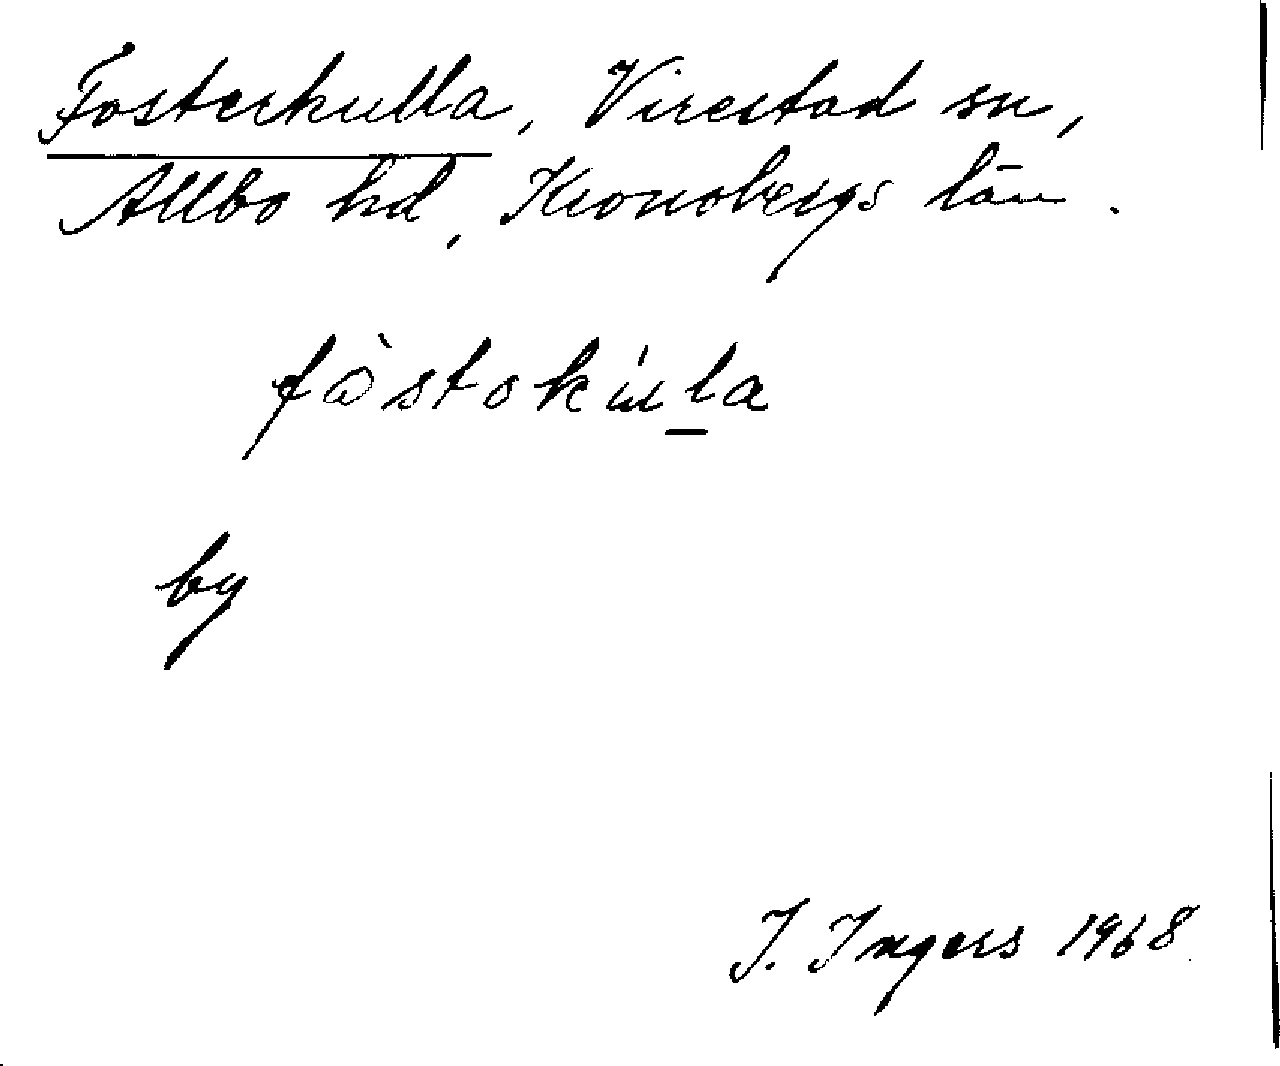 Fosterkulla, Virestad sn,
Allbo hd, Kronobergs län.
fòstokúla
by
I. Ingers 1968